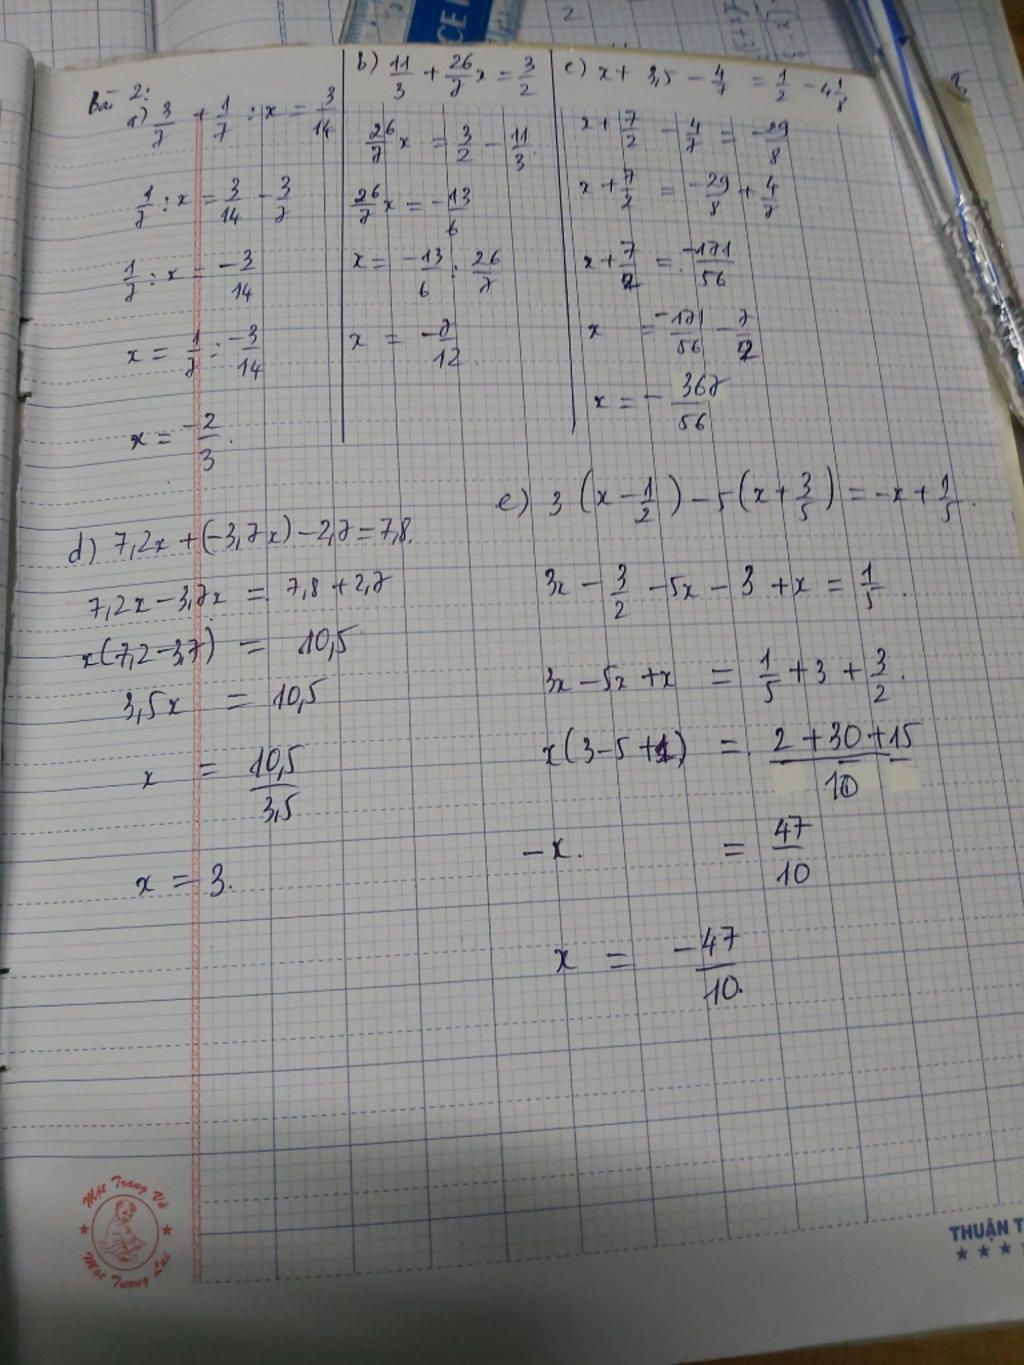 Bài 2:
a) 3/7 + 1/7 : x = 3/14
1/7 : x = 3/14 - 3/7
1/7 : x = -3/14
x = 1/7 : -3/14
x = -2/3.
b) 11/3 + 26/7 x = 3/2
26/7 x = 3/2 - 11/3.
26/7 x = -13/6
x = -13/6 : 26/7
x = -7/12.
c) x + 3,5 - 4/7 = 1/2 - 4 1/8
x + 7/2 - 4/7 = -29/8
x + 7/2 = -29/8 + 4/7
x + 7/2 = -171/56
x = -171/56 - 7/2
x = - 367/56
d) 7,2x + (-3,7x) - 2,7 = 7,8.
7,2x - 3,7x = 7,8 + 2,7
x(7,2-3,7) = 10,5
3,5x = 10,5
x = 10,5/3,5
x = 3.
e) 3 (x - 1/2) - 5 (x + 3/5) = -x + 1/5.
3x - 3/2 - 5x - 3 + x = 1/5.
3x - 5x + x = 1/5 + 3 + 3/2.
x(3 - 5 + 1) = 2 + 30 + 15/10
-x. = 47/10
x = -47/10.
Một Trang Vở
Một Tương Lai
THUẬN T